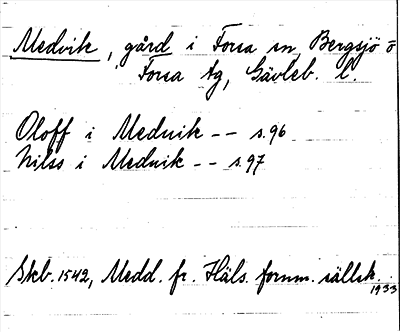 Medvik, gård i Forsa sn, Bergsjö o
Forsa tg, Gävleb. l.
Oloff i Meduik -- s. 96
Nilss i Meduik -- s. 97
Skb. 1542, Medd. fr. Häls. fornm. sällsk. 1933